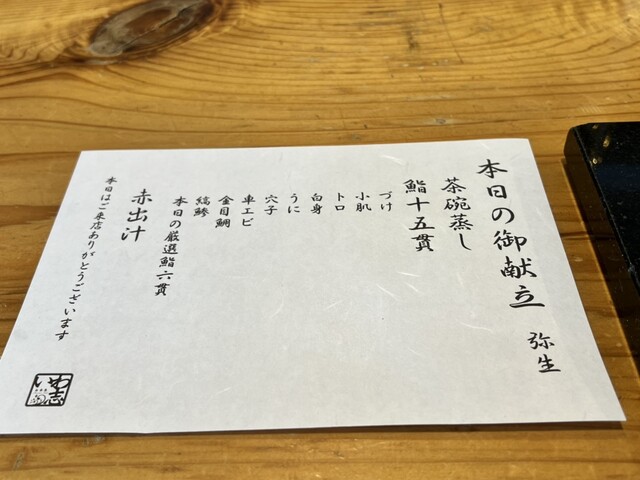 本日の御献立 弥生
茶碗蒸し
鮨十五貫
づけ
小肌
トロ
白身
うに
穴子
車エビ
金目鯛
縞鯵
本日の厳選鮨六貫
赤出汁
本日はご来店ありがとうございます